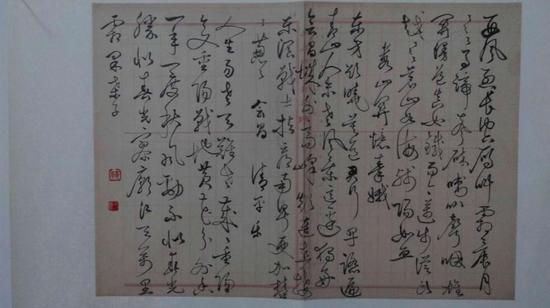 西风烈长空雁叫霜晨月
々々々马蹄声碎喇叭声咽雄
关漫道真如铁而今迈步从头
越々々々苍山如海残阳如血
娄山关忆秦娥
东方欲晓莫道君行早踏遍
青山人未老风景这边独好
会昌城外高峰颠连直接
东溟战士指看南粤更加郁
々葱々 会昌 清平乐
人生易老天难老岁々重阳
今又重阳战地黄花分外香
一年一度秋风劲不似春光
胜似春光寥廓江天万里
霜 采桑子